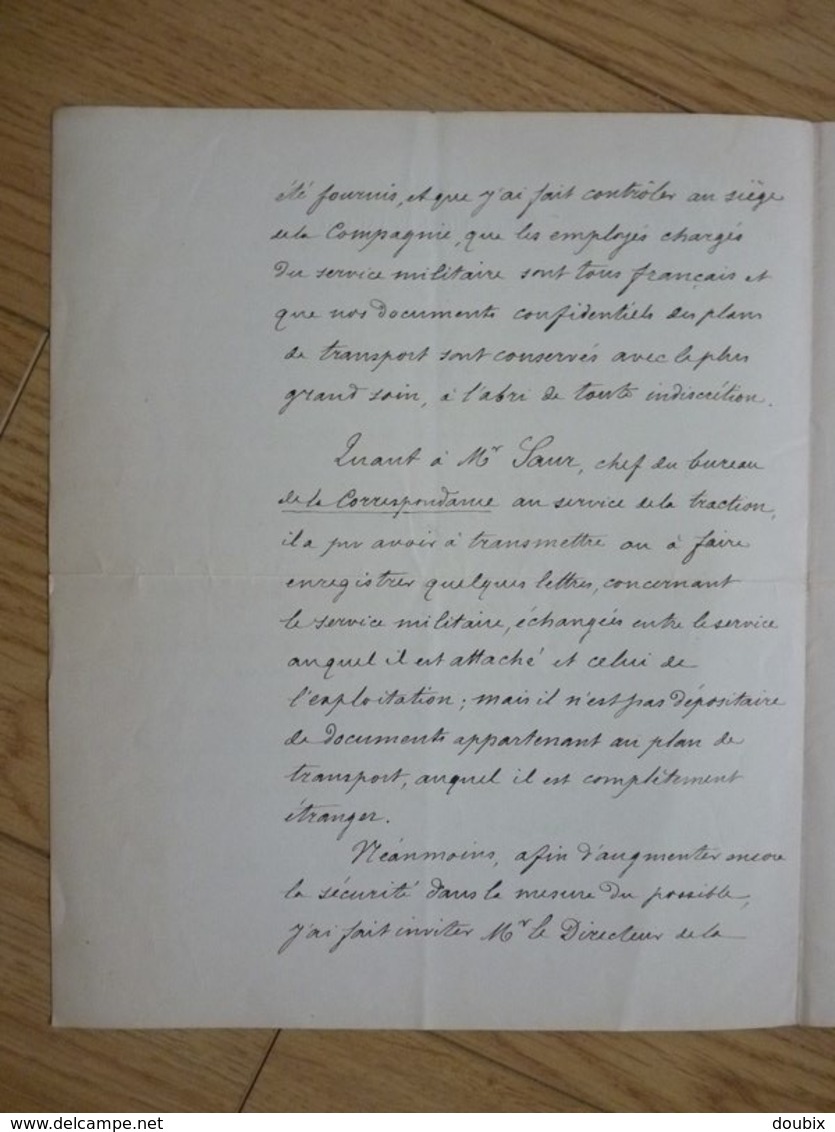 été fournis, et que j'ai fait contrôler au siège
de la Compagnie, que les employés chargés
du service militaire sont tous français et
que nos documents confidentiels des plans
de transport sont conservés avec le plus
grand soin, à l'abri de toute indiscrétion.
Quant à Mr Saur, chef du bureau
de la Correspondance au service de la traction,
il a pu avoir à transmettre ou à faire
enregistrer quelques lettres, concernant
le service militaire, échangées entre le service
auquel il est attaché et celui de
l'exploitation; mais il n'est pas dépositaire
de documents appartenant au plan de
transport, auquel il est complètement
étranger.
Néanmoins, afin d'augmenter encore
la sécurité dans la mesure du possible,
j'ai fait inviter Mr le Directeur de la
www.delcampe.net
doubix